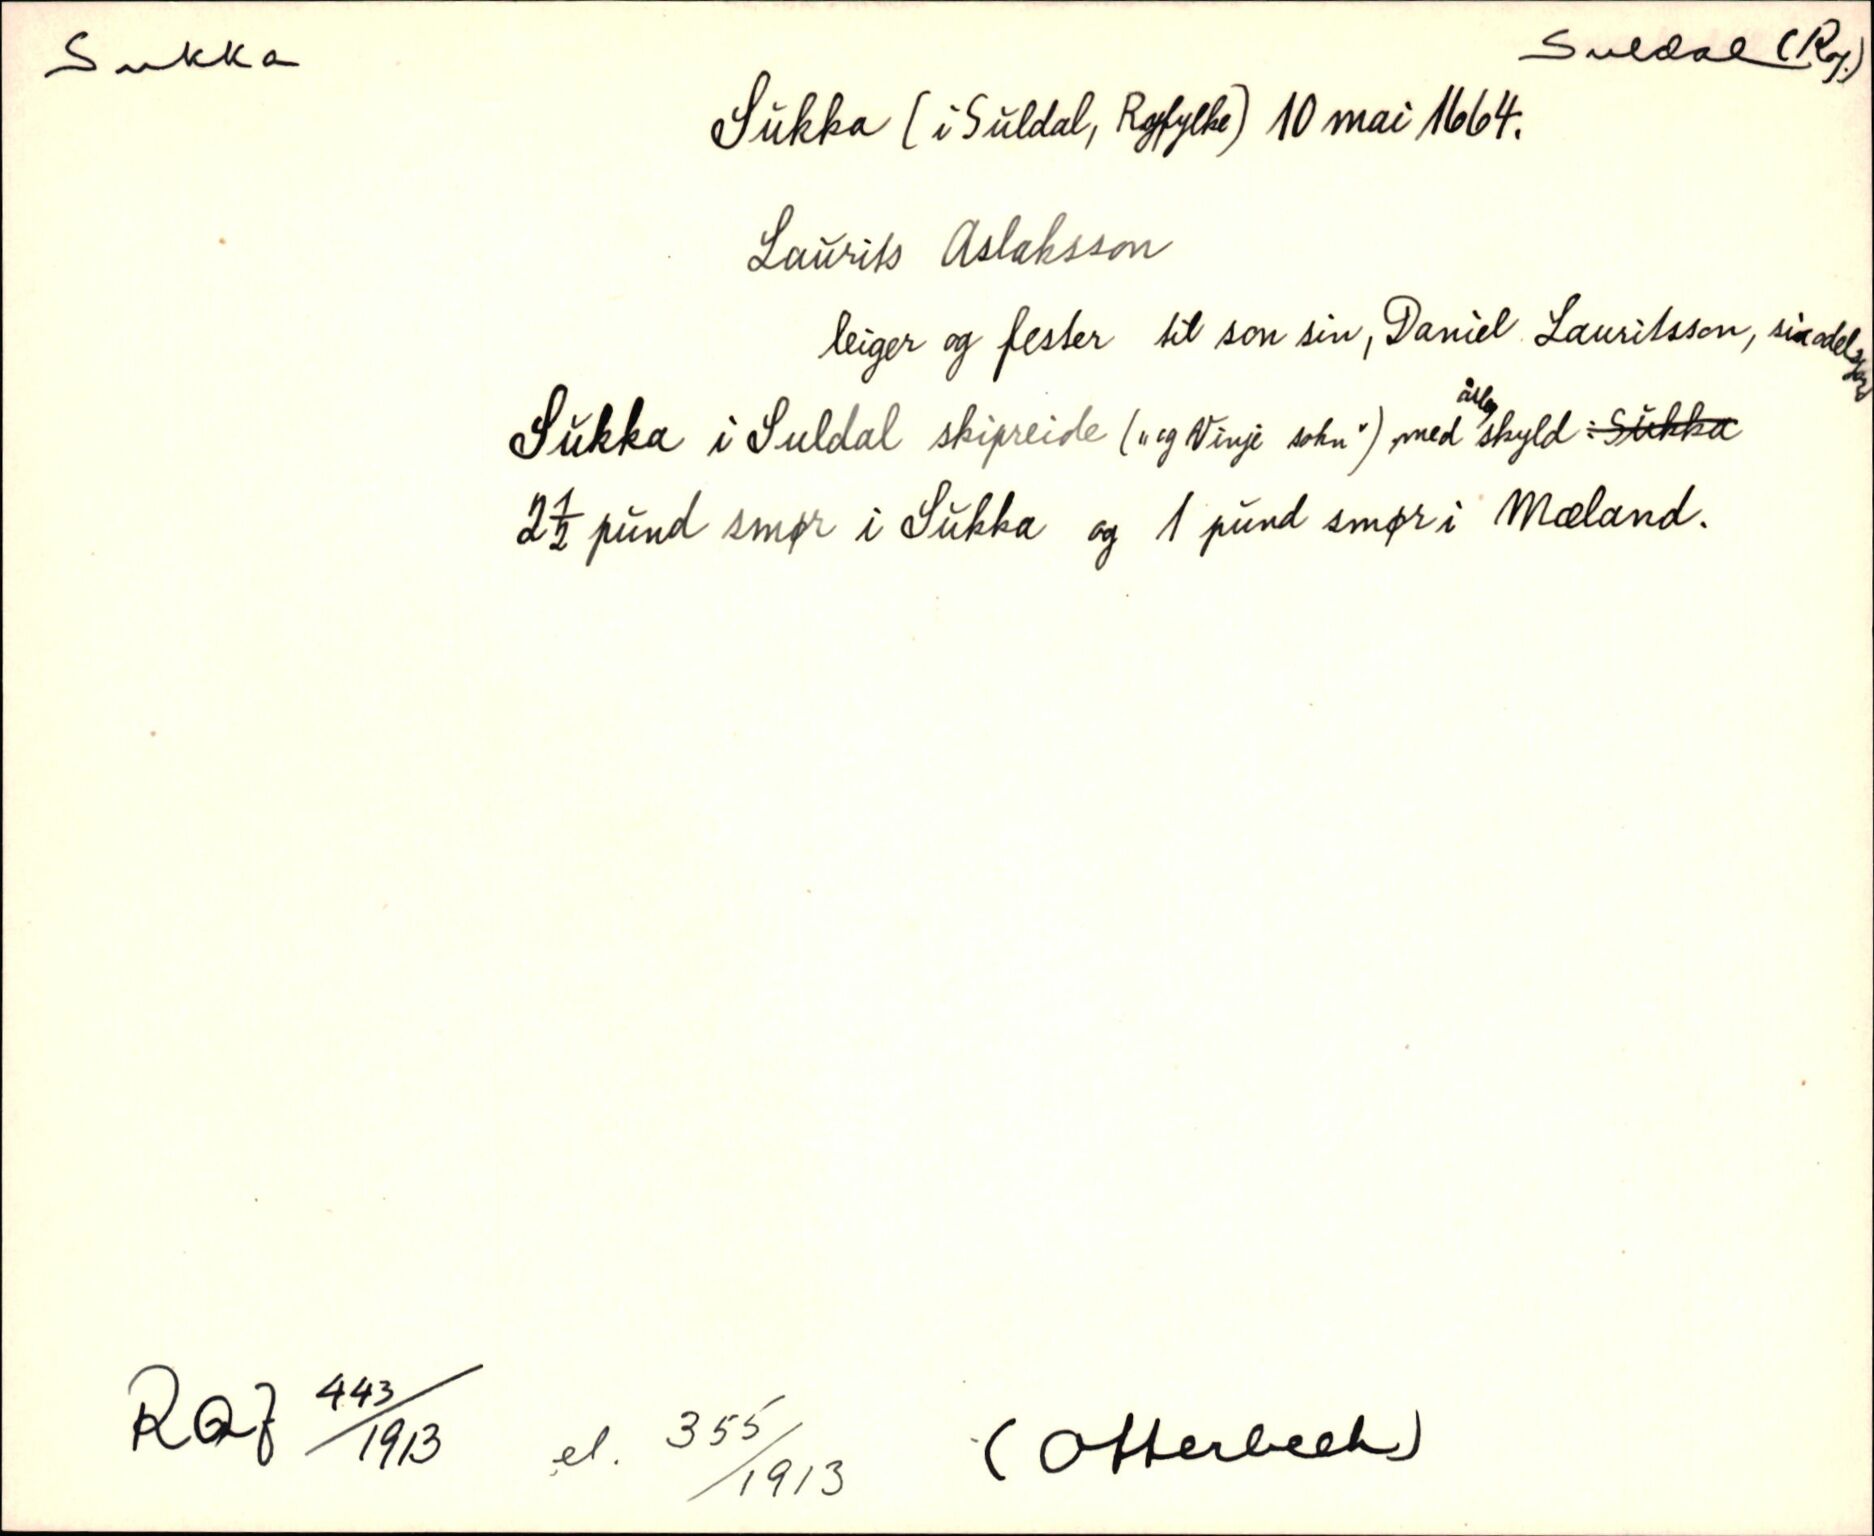 Sukka
Suldal (Rog.)
Sukka (i Suldal, Rogfylke) 10 mai 1664.
Laurits Aslaksson
leiger og fester til son sin, Daniel Lauritsson, sin odelsgard
Sukka i Suldal skipreide („og Vinje sokn“) med årleg skyld : Sukka
2 1/2 pund smør i Sukka og 1 pund smør i Mæland.
443/1913 el. 355/1913 (Otterbech)